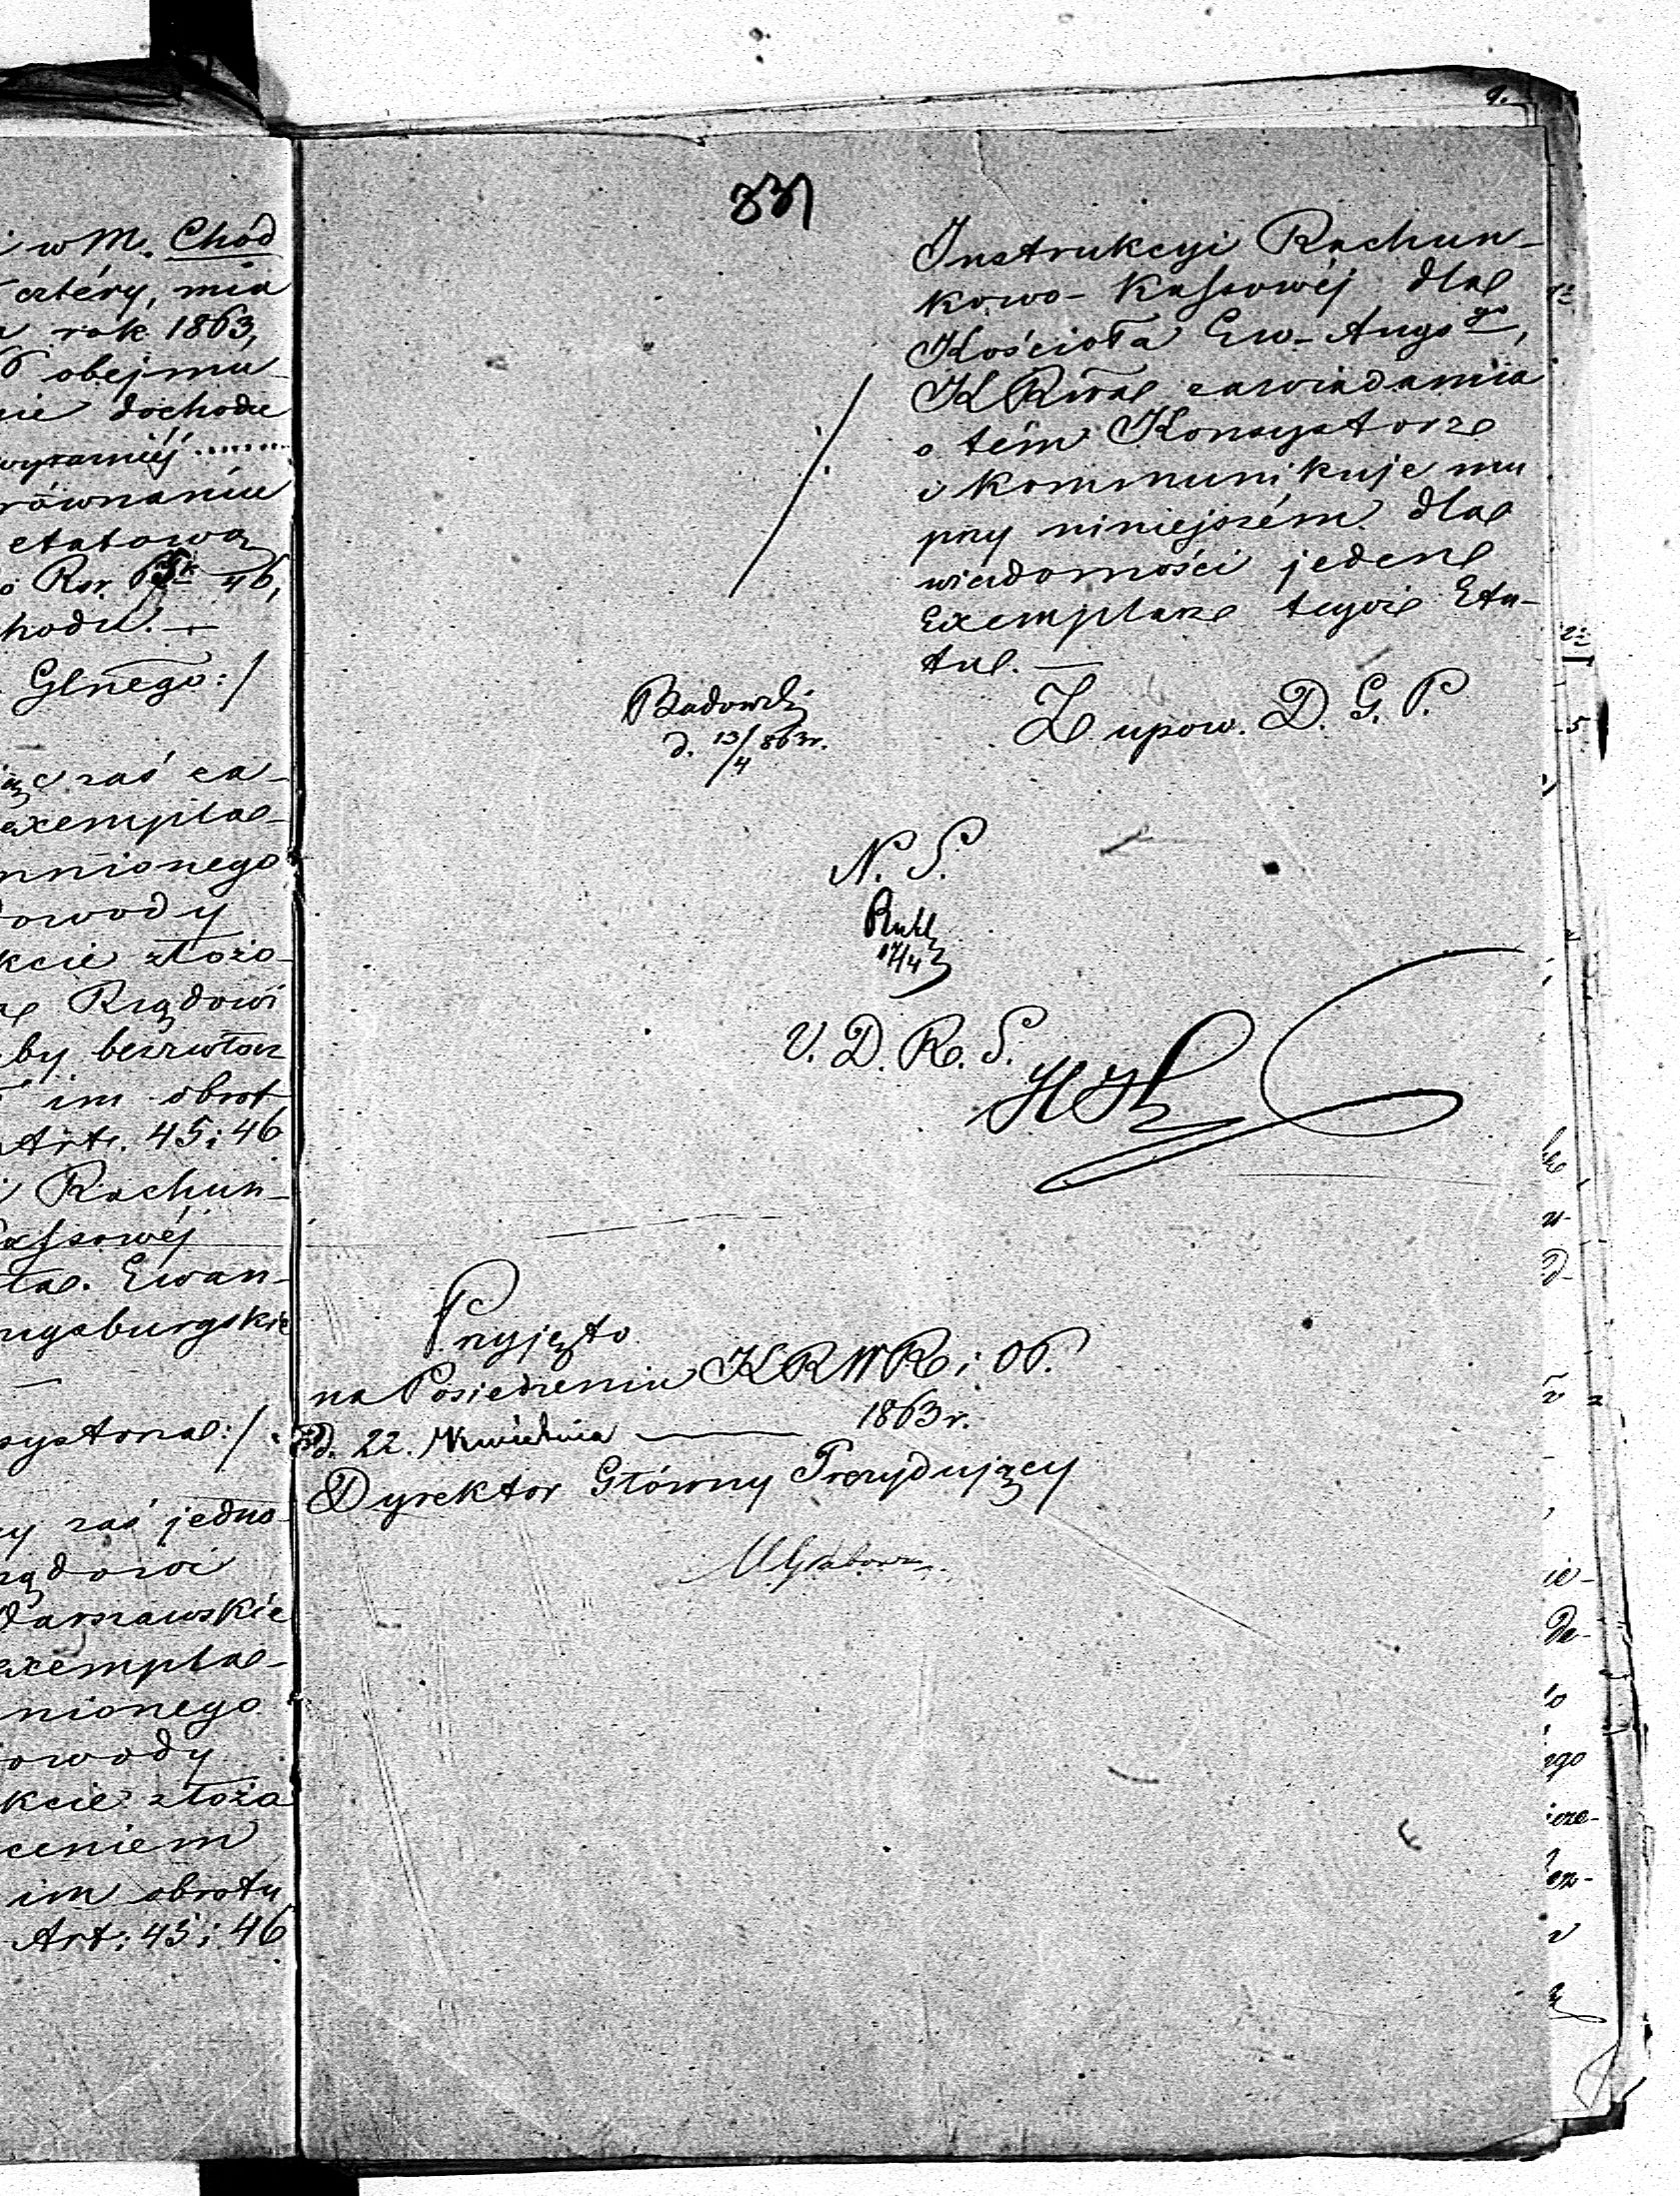 w M. Chod
cztéry, mia
rok 1863,
obejmu-
nie dochodu
wyrazniéj ........
równaniu
etatową
Rsr. 46,
hodu. —
Glnego :/
zaś za-
exempla-
nnionego
dowody
kcie złożo-
Rządowi
by bezzwłocz
im obrot
Art. 45 i 46
i Rachun-
Kassowéj
Ewan-
ugsburgskie
systorza :/.
zaś jedno-
ządowi
Warszawskie
exempla-
nionego
owody
kcie złożo
ceniem
im obrotu
Art: 45 i 46
831
Instrukcyi Rachun-
kowo-Kassowéj dla
Kościoła Ew-Augsgo,
KRWa zawiadamia
o tém Konsystorz
i kommunikuje mu
przy niniejszém dla
wiadomości jeden
Exemplarz tegoż Eta-
tu. —
Z upow. D. G. P.
Badowski
d. 13/4 863r.
N. S.
17/4
V. D. R. S.
Przyjęto
na Posiedzeniu KRWR i OP.
d. 22. Kwietnia — 1863 r.
Dyrektor Główny Prezydujący